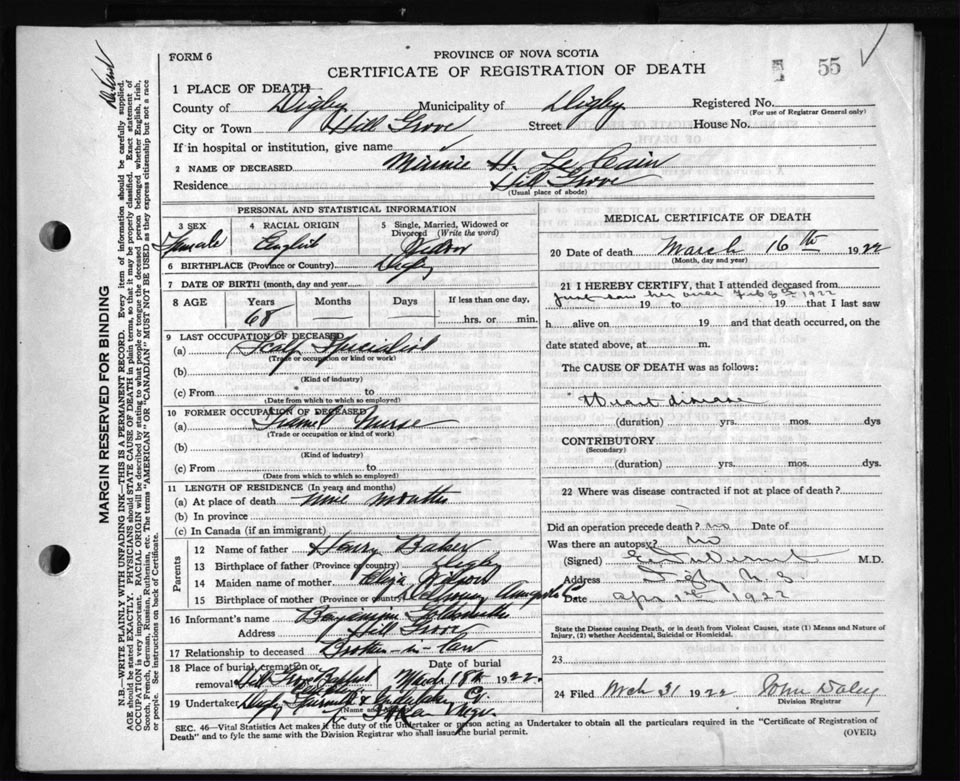 FORM 6
PROVINCE OF NOVA SCOTIA
CERTIFICATE OF REGISTRATION OF DEATH
55
1 PLACE OF DEATH
County of Digby Municipality of Digby Registered No.
(For use of Registrar General only)
City or Town Hill Grove Street House No.
If in hospital or institution, give name
2 NAME OF DECEASED Minnie H. Le Cain
Residence Hill Grove
(Usual place of abode)
PERSONAL AND STATISTICAL INFORMATION
3 SEX Female
4 RACIAL ORIGIN English
5 Single, Married, Widowed or Divorced (Write the word) Widow
6 BIRTHPLACE (Province or Country) Digby
7 DATE OF BIRTH (month, day and year)
8 AGE Years 68 Months — Days — If less than one day, hrs. or min.
9 LAST OCCUPATION OF DECEASED
(a) Scalp Specialist
(Trade or occupation or kind or work)
(b)
(Kind of industry)
(c) From to
(Date from which to which so employed)
10 FORMER OCCUPATION OF DECEASED
(a) Trained Nurse
(Trade or occupation or kind of work)
(b)
(Kind of industry)
(c) From to
(Date from which to which so employed)
11 LENGTH OF RESIDENCE (In years and months)
(a) At place of death nine months
(b) In province
(c) In Canada (if an immigrant)
Parents
12 Name of father Henry Baker
13 Birthplace of father (Province or country) Digby
14 Maiden name of mother Eliza
15 Birthplace of mother (Province or country)
16 Informant's name Benjamine
Address Hill Grove
17 Relationship to deceased Brother-in-law
18 Place of burial, cremation or removal Hill Grove Baptist
Date of burial March 18th 1922.
19 Undertaker Digby
(Name and Address)
MEDICAL CERTIFICATE OF DEATH
20 Date of death March 16th 1922
(Month, day and year)
21 I HEREBY CERTIFY, that I attended deceased from
just saw her once Feb 1922
19 to 19 that I last saw
h alive on 19 and that death occurred, on
date stated above, at m.
The CAUSE OF DEATH was as follows:
Heart disease
(duration) yrs. mos. dys
CONTRIBUTORY
(Secondary)
(duration) yrs. mos. dys.
22 Where was disease contracted if not at place of death?
Did an operation precede death? no Date of
Was there an autopsy? no
(Signed) M.D.
Address Digby N.S
Date Apr 1st 1922
State the Disease causing Death, or in death from Violent Causes, state (1) Means and Nature of Injury, (2) whether Accidental, Suicidal or Homicidal.
23
24 Filed Mch 31 1922 John Daley
Division Registrar
SEC. 46—Vital Statistics Act makes it the duty of the Undertaker or person acting as Undertaker to obtain all the particulars required in the "Certificate of Registration of
Death" and to fyle the same with the Division Registrar who shall issue the burial permit.
(OVER)
MARGIN RESERVED FOR BINDING
N.B.—WRITE PLAINLY WITH UNFADING INK—THIS IS A PERMANENT RECORD. Every item of information should be carefully supplied.
AGE should be stated EXACTLY. PHYSICIANS should STATE CAUSE OF DEATH in plain terms, so that it may be properly classified. Exact statement of
OCCUPATION is very important. RACIAL ORIGIN will be described by stating to what people or tongue the deceased person belonged whether English, Irish,
Scotch, French, German, Russian, Ruthenian, etc. The terms "AMERICAN" or "CANADIAN" MUST NOT BE USED as they express citizenship but not a race
or people. See instructions on back of Certificate.